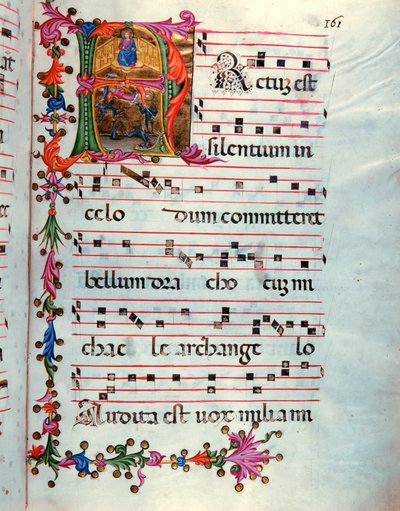 161
FActuz est
silentium in
celo dum committeret
bellum dra cho cuz mi
chae le archange lo
Audita est uox milia mi